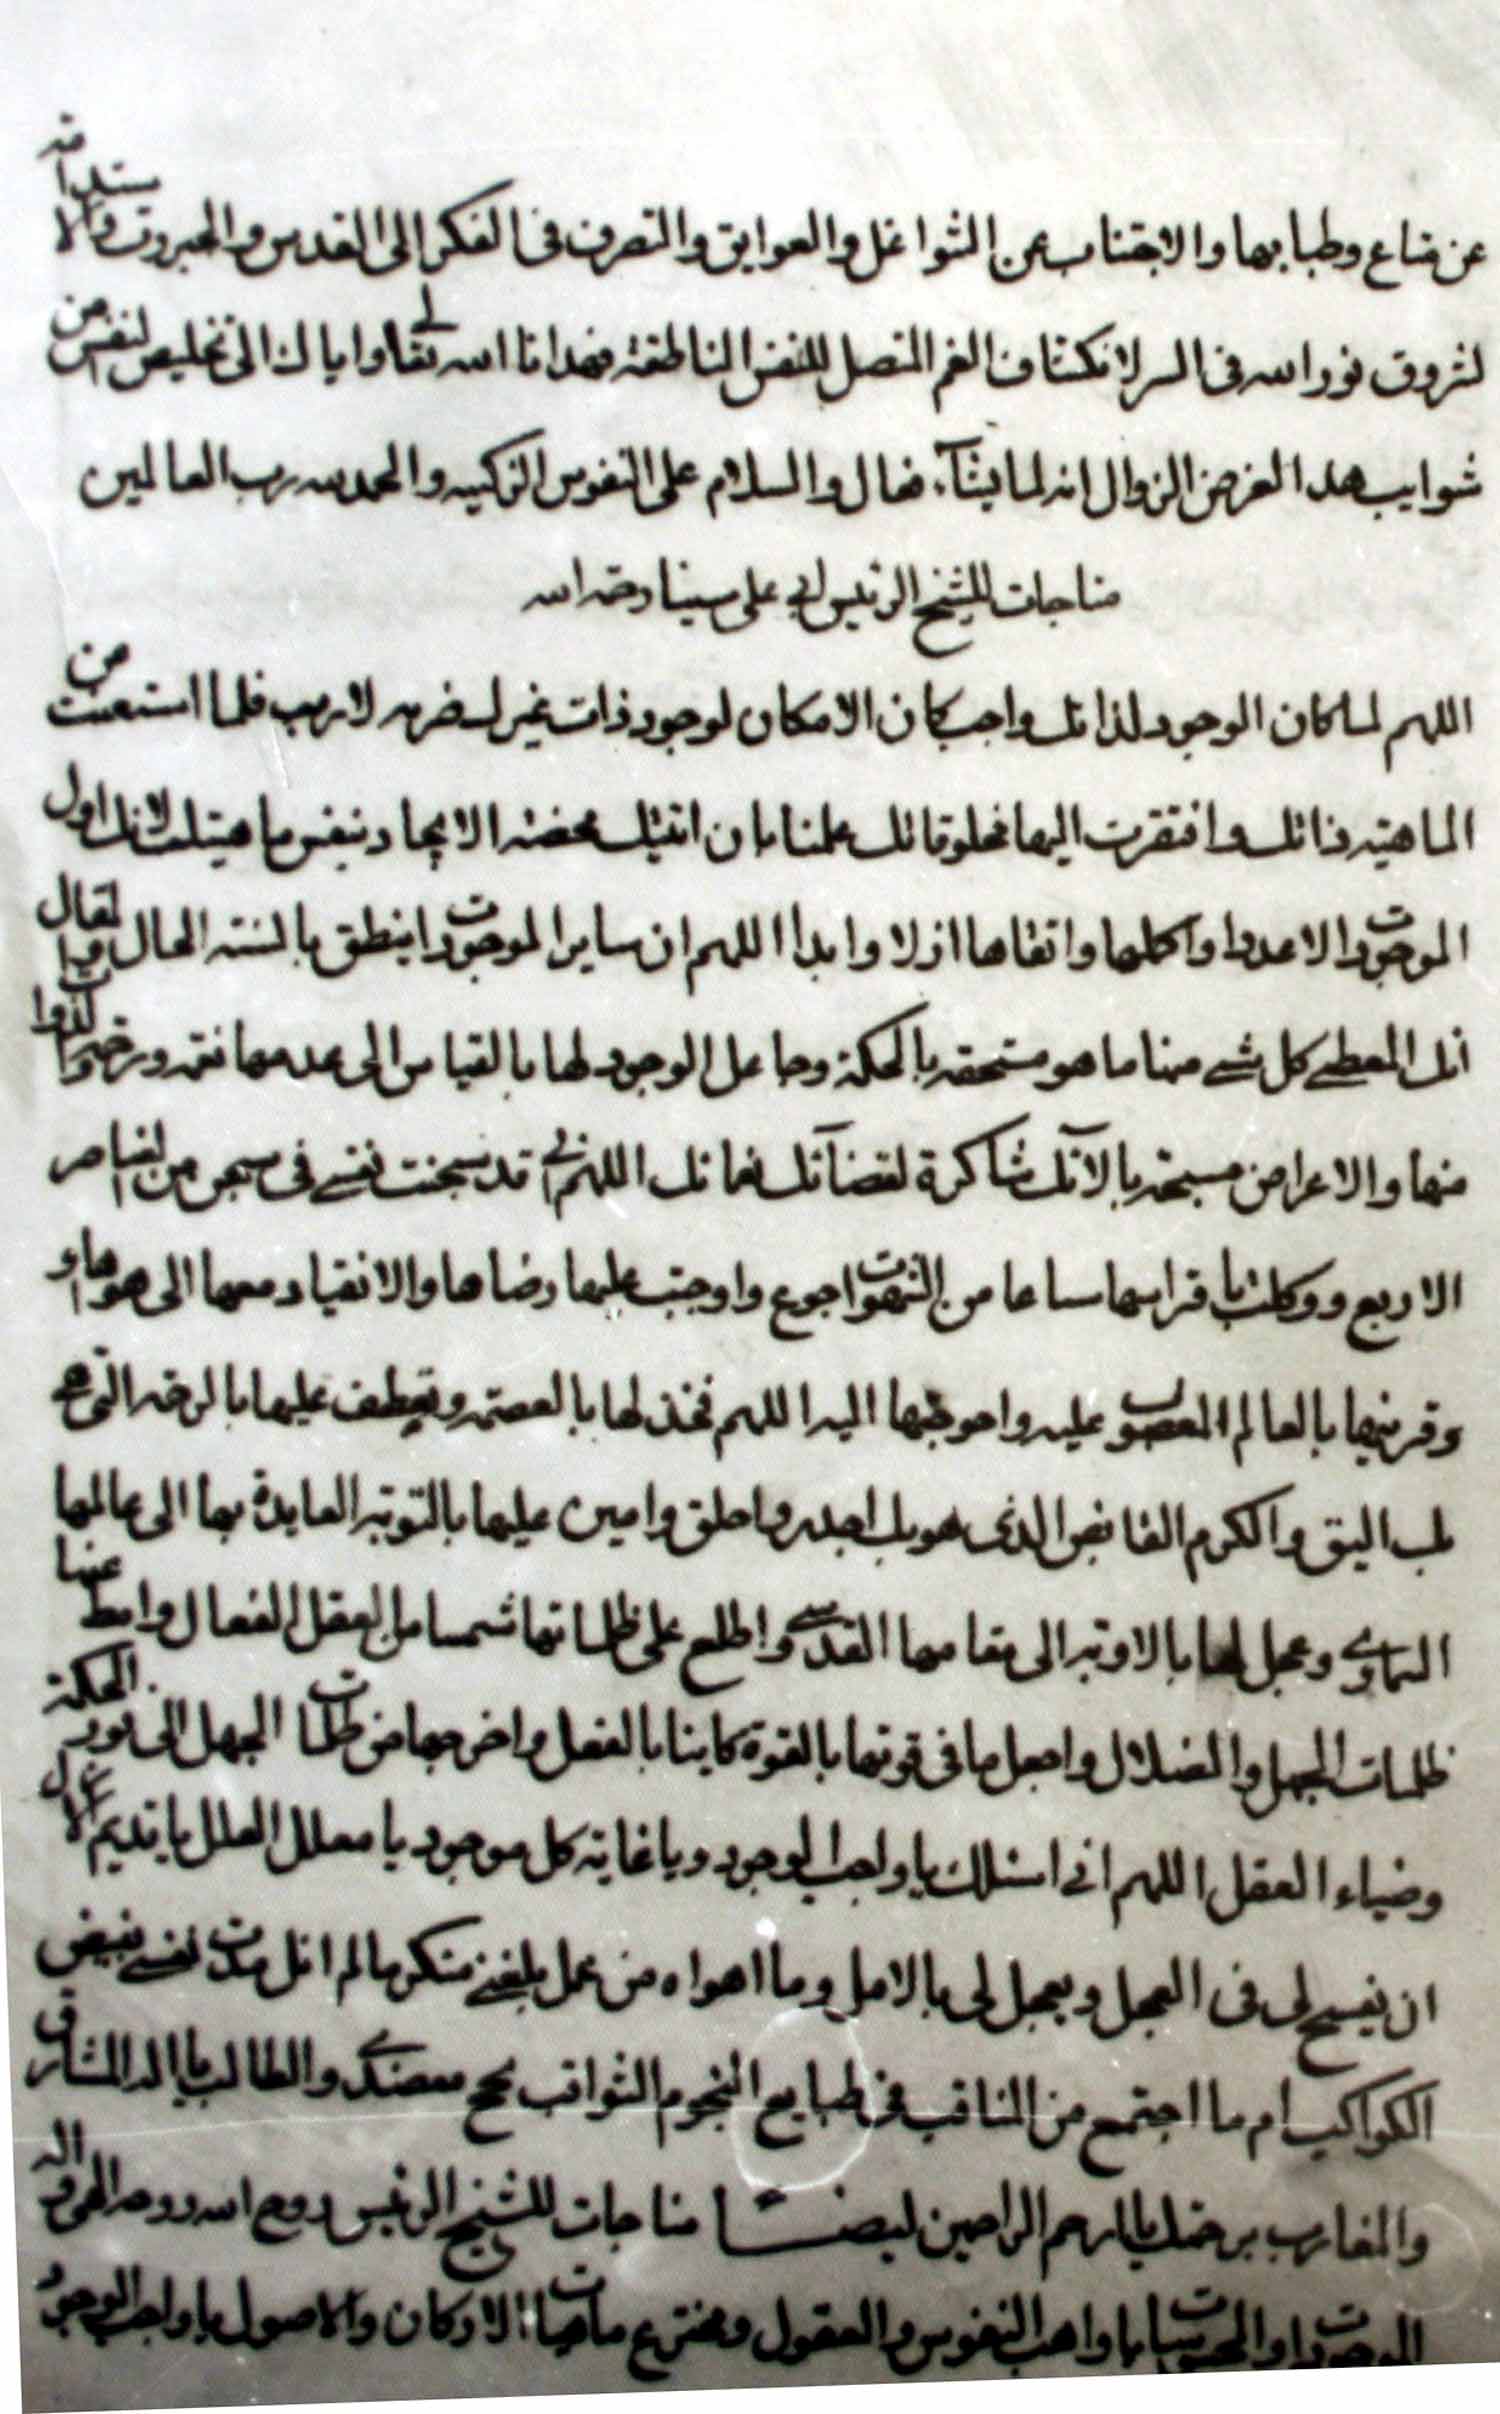 عن متاع وطبايها والاجتناب عن الشواغل والعوايق والتصرف فى الفكر الى القدس والجبروت والاستدامة
لشروق نور الله فى السر لانكشاف الغم المتصل للنفس الناطقة فهدانا الله تعالى واياك الى تخليص النفس من
شوايب هذا العرض الزوال انه لما يشآء فعال والسلام على النفوس الزكيه والحمد لله رب العالمين
مناجات للشيخ الرئيس ابى على سينا رحمه الله
اللهم لما كان الوجود لذاتك واجب كان الامكان لوجود ذات غيرك ضربه لازب فلما استغنت من
الماهيته ذاتك وافتقرت اليها مخلوقاتك علمنا بان انيتك محضة الايجاد بنفس ماهيتك لانك اول
الموجودات لا عددا واكلها واتقاها ازلا وابدا اللهم ان ساير الموجودات ينطق بالسنة الحال والمقال
انك المعطى كل شىء منها ما هو مستحقه بالحكمة وجاعل الوجود لها بالقياس الى عدمها نعمه ورحمة والذوات
منها والاعراض مسبحة بالآئك شاكرة لقضآئك نعمائك اللهم انى قد سجنت نفسى فى سجن من العناصر
الاربع ووكلت باقراسها سباعا من الشهوات جوع واوجبت عليها رضاها والانقياد معها الى هواها و
وقرنتها بالعالم المغضوب عليه واحوجتها اليه اللهم فخذ لها بالعصمة وتعطف عليها بالرحمه التى هى
بك اليق والكرم الفايض الذى هو بك اجدر واخلق وامنن عليها بالتوبه العايدة بها الى عالمها
السماوى وعجل لها بالاوبه الى مقامها القدسى واطلع على ظلماتها شمسا من العقل الفعال وامط عنها
ظلمات الجهل والضلال واجعل ما فى قوتها بالقوة كاينا بالفعل واخرجها من ظلمات الجهل الى نور الحكمة
وضياء العقل اللهم انى اسئلك يا واجب الوجود ويا غاية كل موجود يا معلل العلل يا قديم
ان يفسح لى فى العجل ويعجل لى بالامل وما اهواه من عمل بلغنى منكر ما لم انل مدت نفسى بفيض
الكواكب ام ما اجتمع من المناقب فى طبايع النجوم الثواقب نجح مقصدى والطالب يا اله المشارق
والمغارب برحمتك يا ارحم الراحمين ايضا مناجات للشيخ الرئيس روح الله روحه الهى واله
الموجودات والمحسوسات يا واهب النفوس والعقول ومخترع ماهيات الاركان والاصول يا واجب الوجود